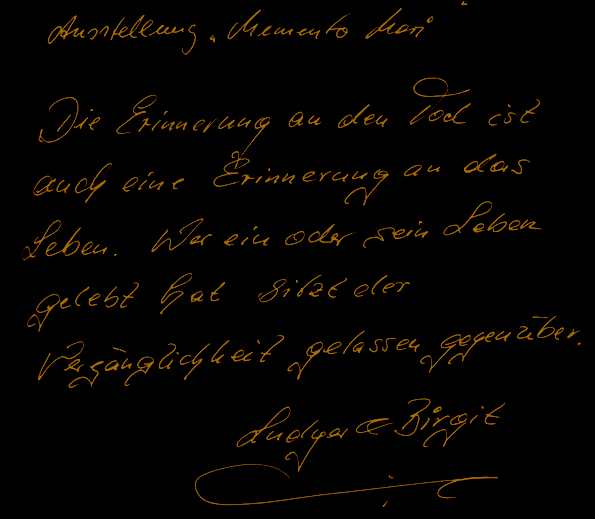 Ausstellung „Memento Mori"
Die Erinnerung an den Tod ist
auch eine Erinnerung an das
Leben. Wer ein oder sein Leben
gelebt hat sitzt der
Vergänglichkeit gelassen gegenüber.
Ludger & Birgit